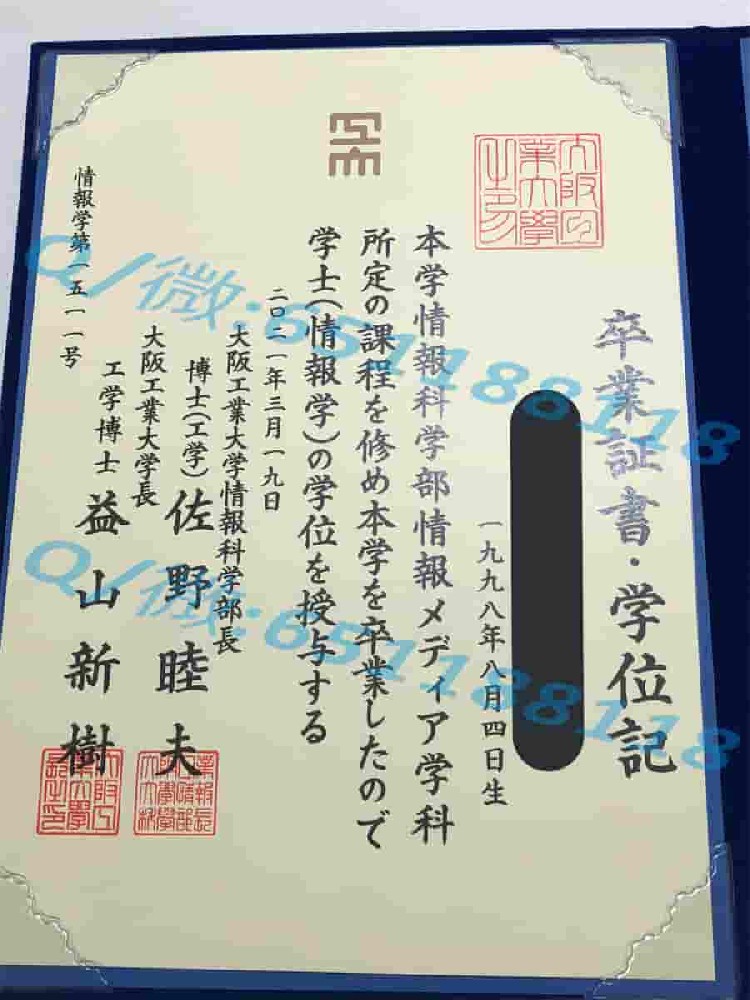 卒業証書・学位記
一九九八年八月四日生
本学情報科学部情報メディア学科
所定の課程を修め本学を卒業したので
学士(情報学)の学位を授与する
二〇二一年三月一九日
大阪工業大学情報科学部長
博士(工学) 佐野睦夫
大阪工業大学長
工学博士 益山新樹
情報学第一五一一号
大阪工業大學之印
Q/微:651188118
Q/微:651188118